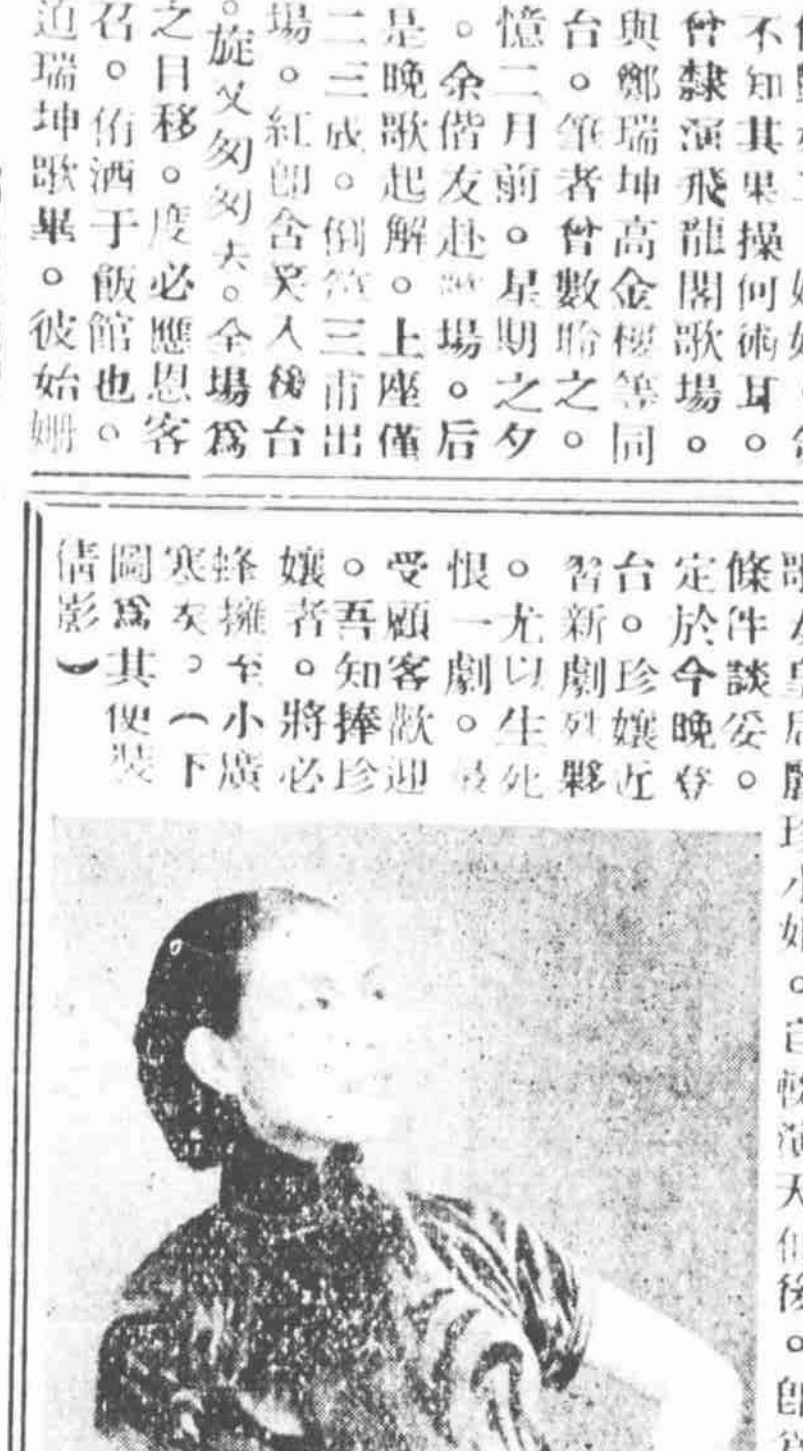 不知其果操何術耳。
曾隸演飛龍閣歌場。
與鄭瑞坤高金樓等同
台。筆者曾數聆之。
憶二月前。星期之夕
。余偕友赴場。后
是晚歌起解。上座僅
二三成。倒第三甫出
場。紅郎含笑入後台
。旋又匆匆去。全場爲
之目移。度必應恩客
召。侑酒于飯館也。
迫瑞坤歌畢。彼始姍
珍小姐。自輟演天仙後。
條件談妥。
定於今晚登
台。珍孃近
習新劇烈夥
。尤以生死
恨一劇。最
受顧客歡迎
。吾知捧珍
孃者。將必
蜂擁至小廣
寒矣。（下
圖爲其便裝
倩影）